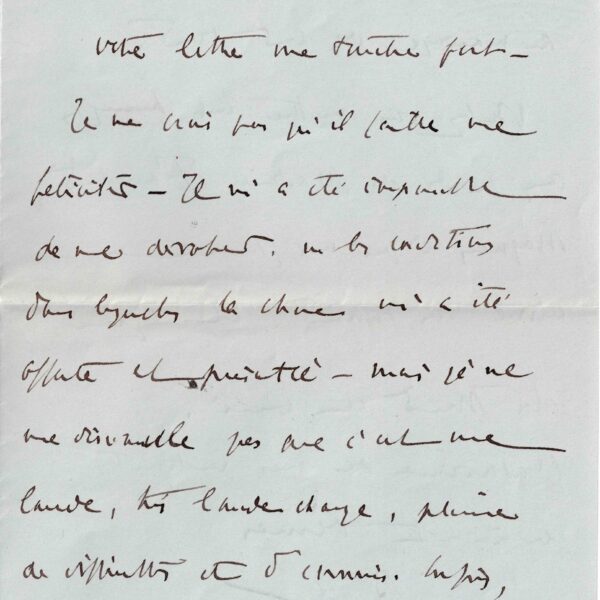 votre lettre me touche fort –
Je ne crois pas qu'il faille me
féliciter – Il m'a été impossible
de me dérober, vu les conditions
dans lesquelles la chose m'a été
offerte et présentée – mais je ne
me dissimule pas que c'est une
lourde, très lourde charge, pleine
de difficultés et d'ennuis. Enfin,